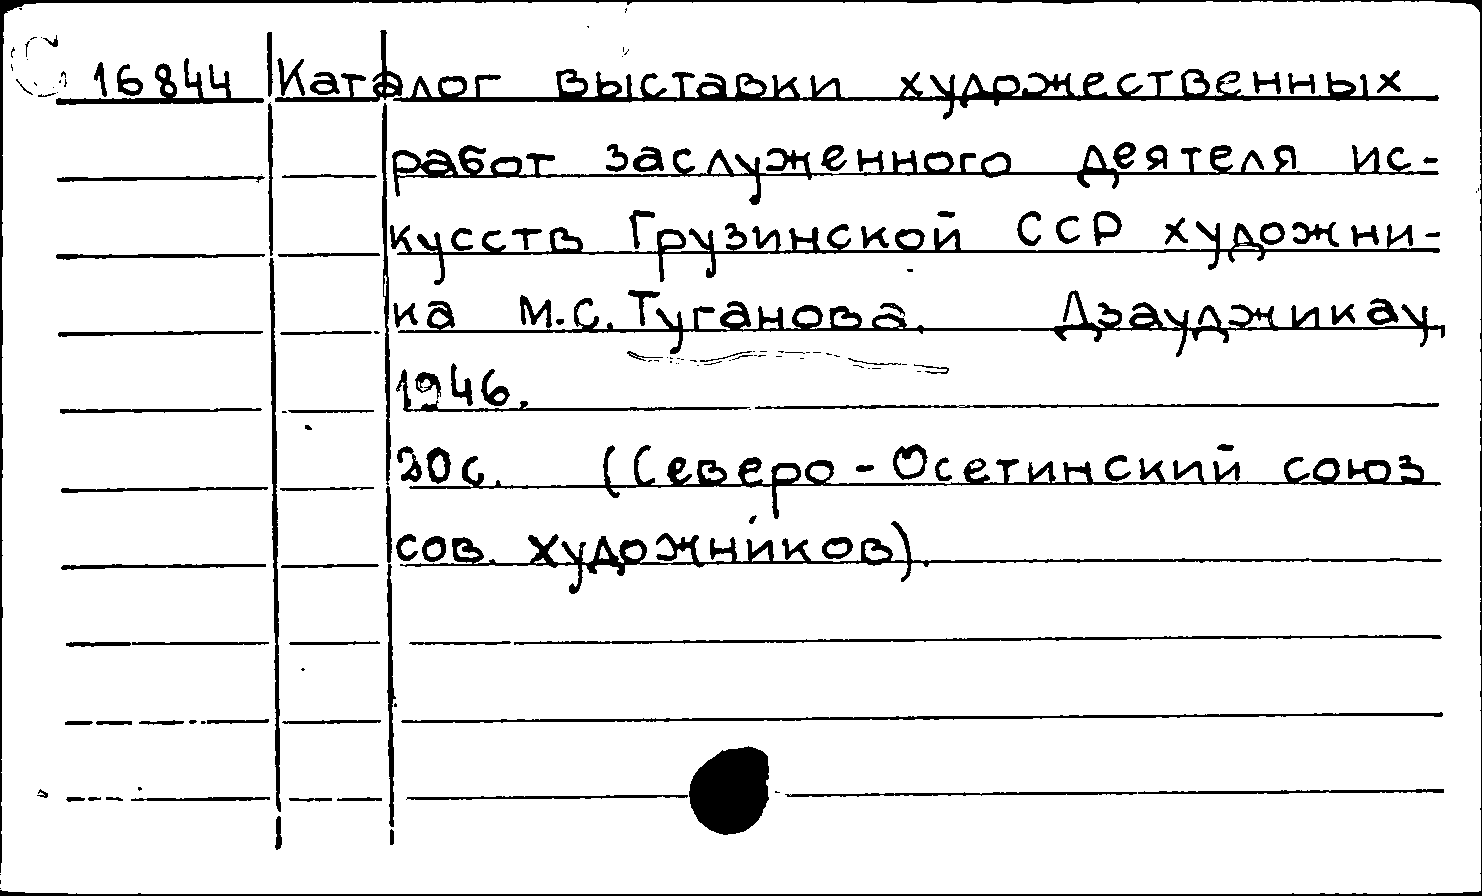 С 16844 Каталог выставки художественных
работ заслуженного деятеля ис-
кусств Грузинской ССР художни-
ка М.С. Туганова. Дзауджикау,
1946.
20 с. (Северо-Осетинский союз
сов. художников).